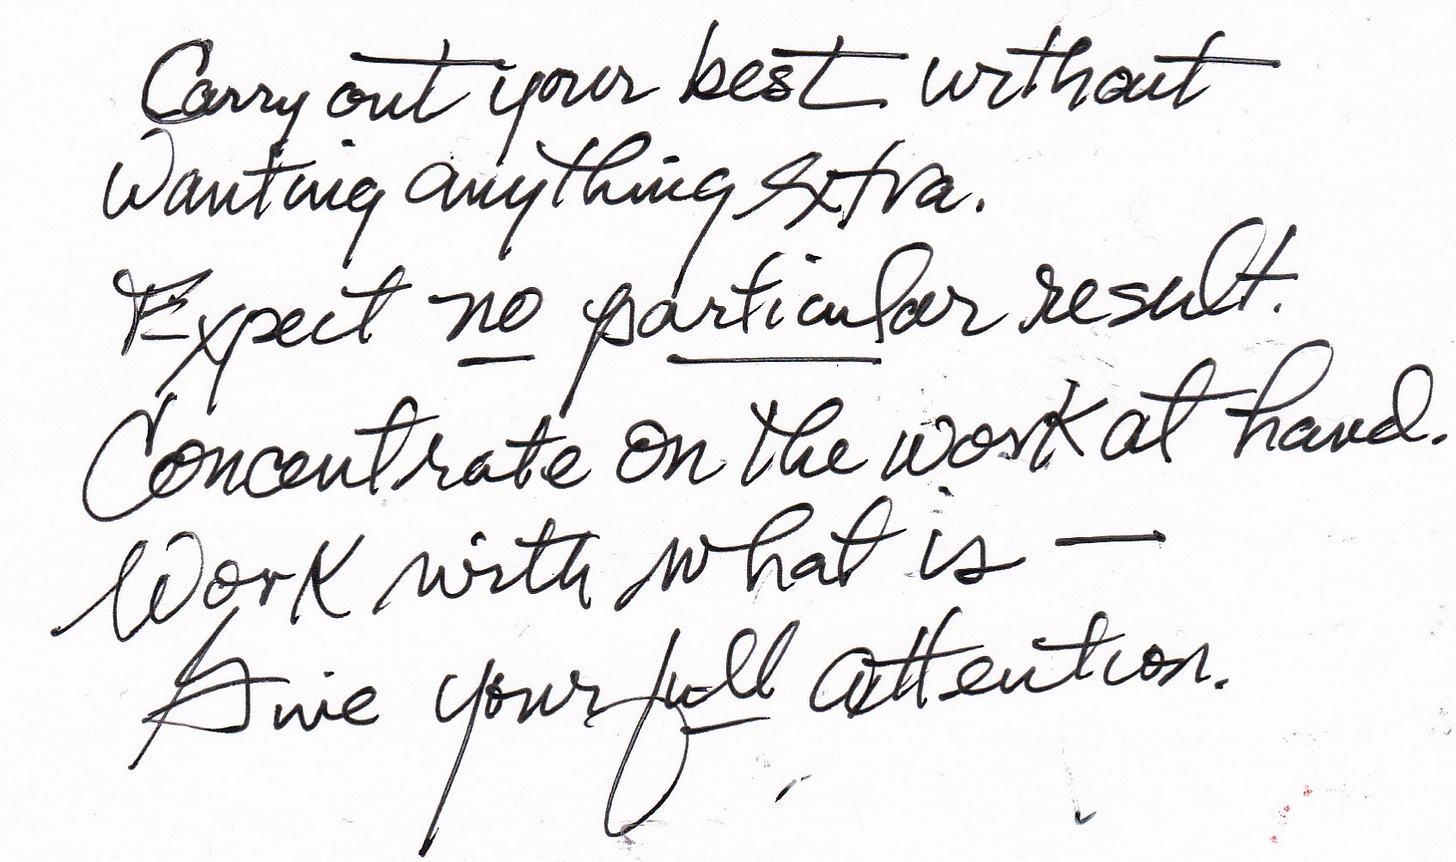 Carry out your best without
Wanting anything extra.
Expect no particular result.
Concentrate on the work at hand.
Work with what is —
Give your full attention.